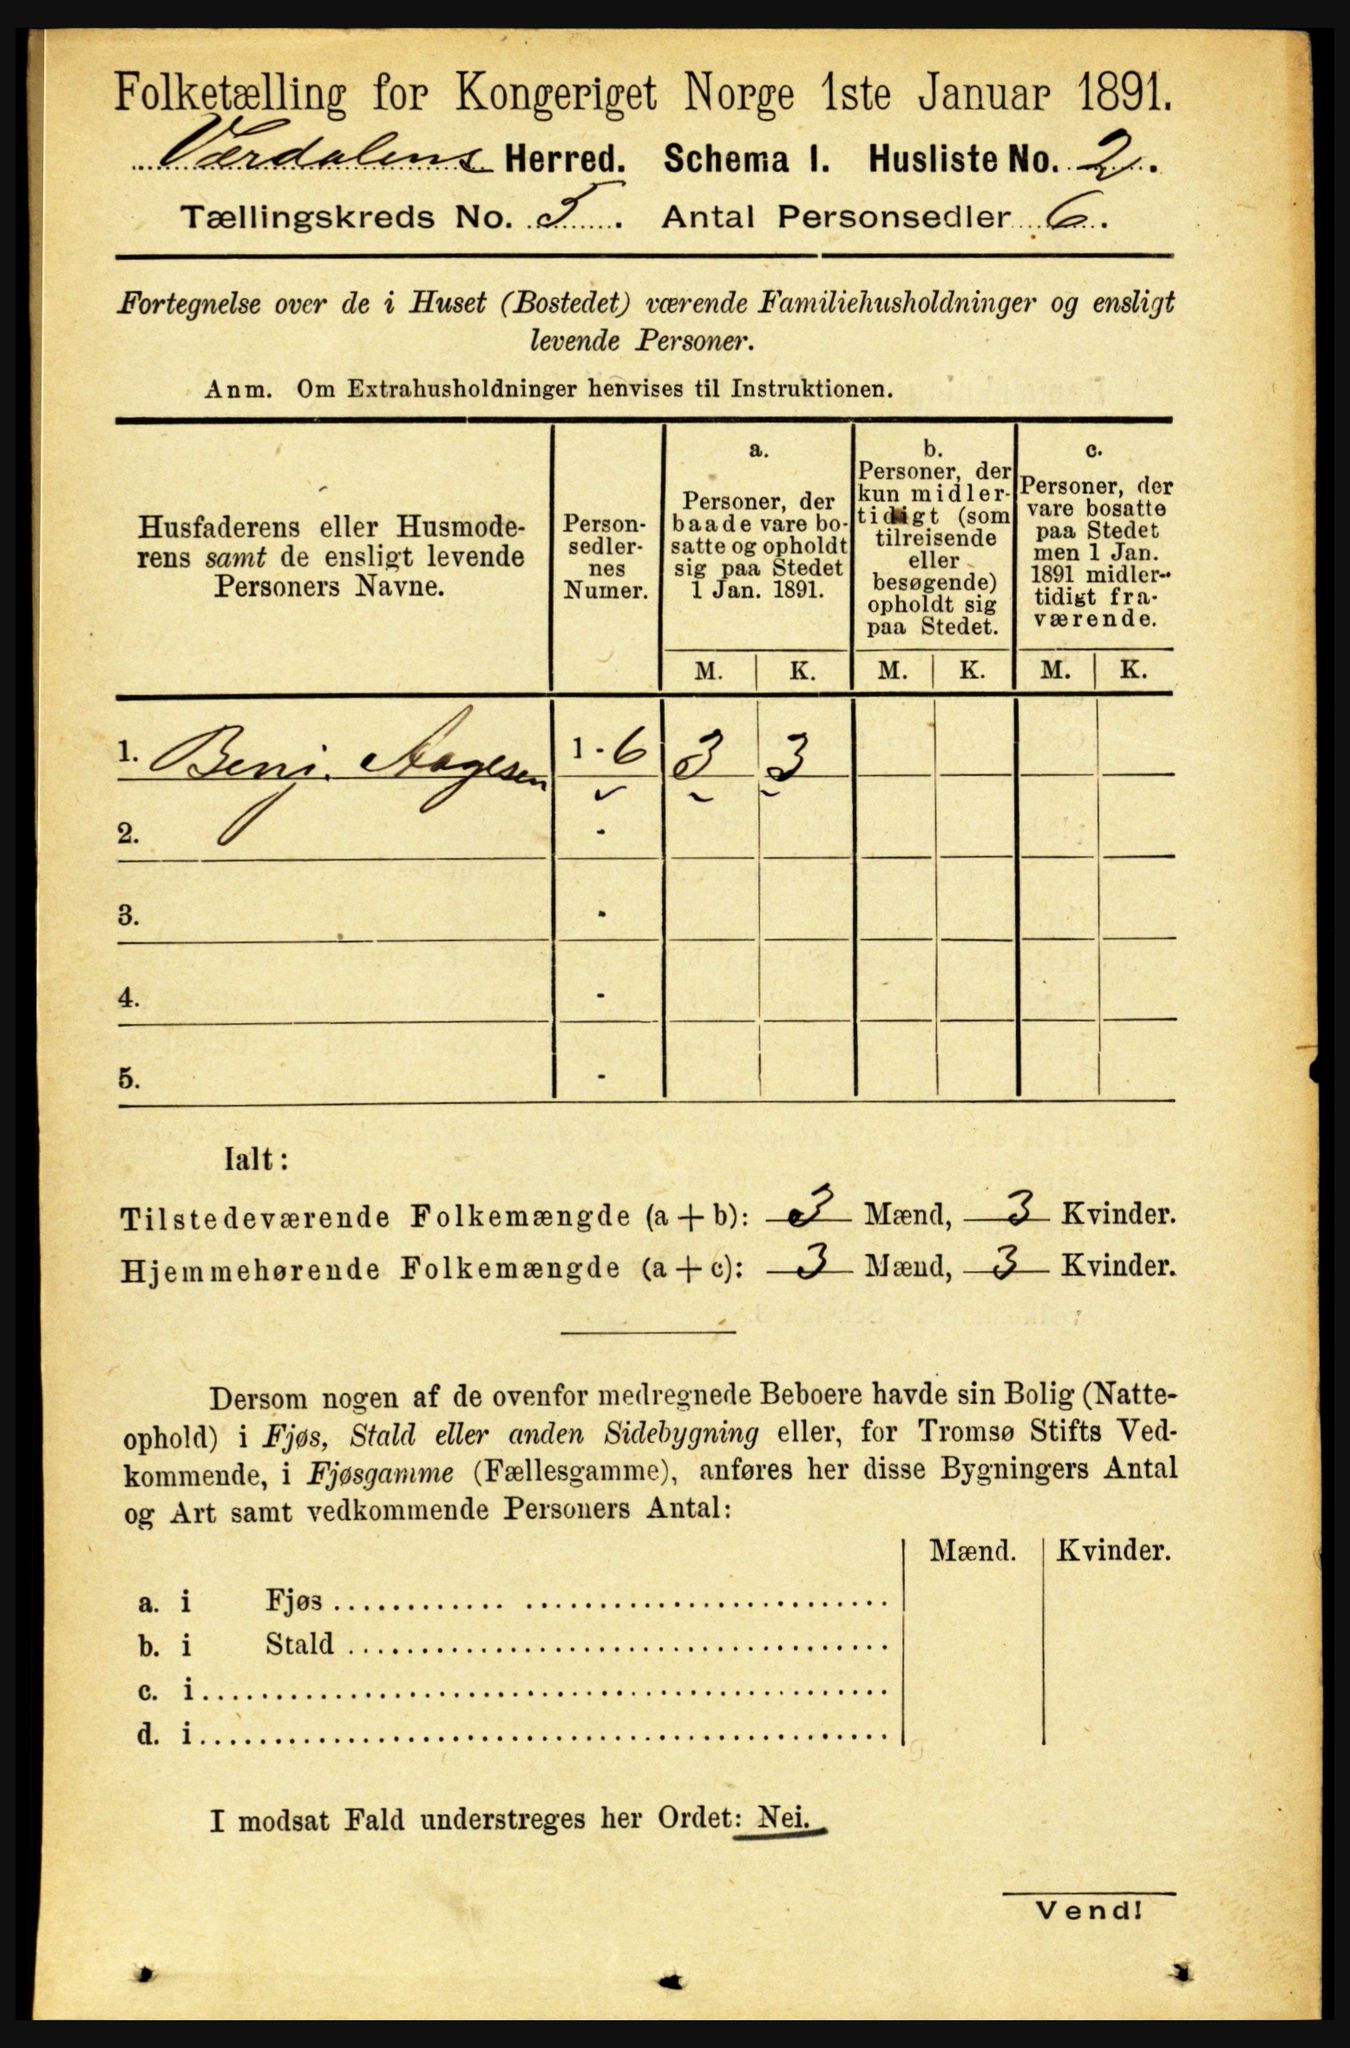 Folketælling for Kongeriget Norge 1ste Januar 1891.
Værdalens Herred. Schema I. Husliste No. 2.
Tællingskreds No. 5. Antal Personsedler 6.
Fortegnelse over de i Huset (Bostedet) værende Familiehusholdninger og ensligt
levende Personer.
Anm. Om Extrahusholdninger henvises til Instruktionen.
Husfaderens eller Husmode-
rens samt de ensligt levende
Personers Navne.
Person-
sedler-
nes
Numer.
a.
Personer, der
baade vare bo-
satte og opholdt
sig paa Stedet
1 Jan. 1891.
b.
Personer, der
kun midler-
tidigt (som
tilreisende
eller
besøgende)
opholdt sig
paa Stedet.
c.
Personer, der
vare bosatte
paa Stedet
men 1 Jan.
1891 midler-
tidigt fra-
værende.
M. K. M. K. M. K.
1. Benj. Aagesen 1 - 6 3 3
2. -
3. -
4. -
5. -
Ialt:
Tilstedeværende Folkemængde (a + b): 3 Mænd, 3 Kvinder.
Hjemmehørende Folkemængde (a + c): 3 Mænd, 3 Kvinder.
Dersom nogen af de ovenfor medregnede Beboere havde sin Bolig (Natte-
ophold) i Fjøs, Stald eller anden Sidebygning eller, for Tromsø Stifts Ved-
kommende, i Fjøsgamme (Fællesgamme), anføres her disse Bygningers Antal
og Art samt vedkommende Personers Antal:
Mænd. Kvinder.
a. i Fjøs
b. i Stald
c. i
d. i
I modsat Fald understreges her Ordet: Nei.
Vend!